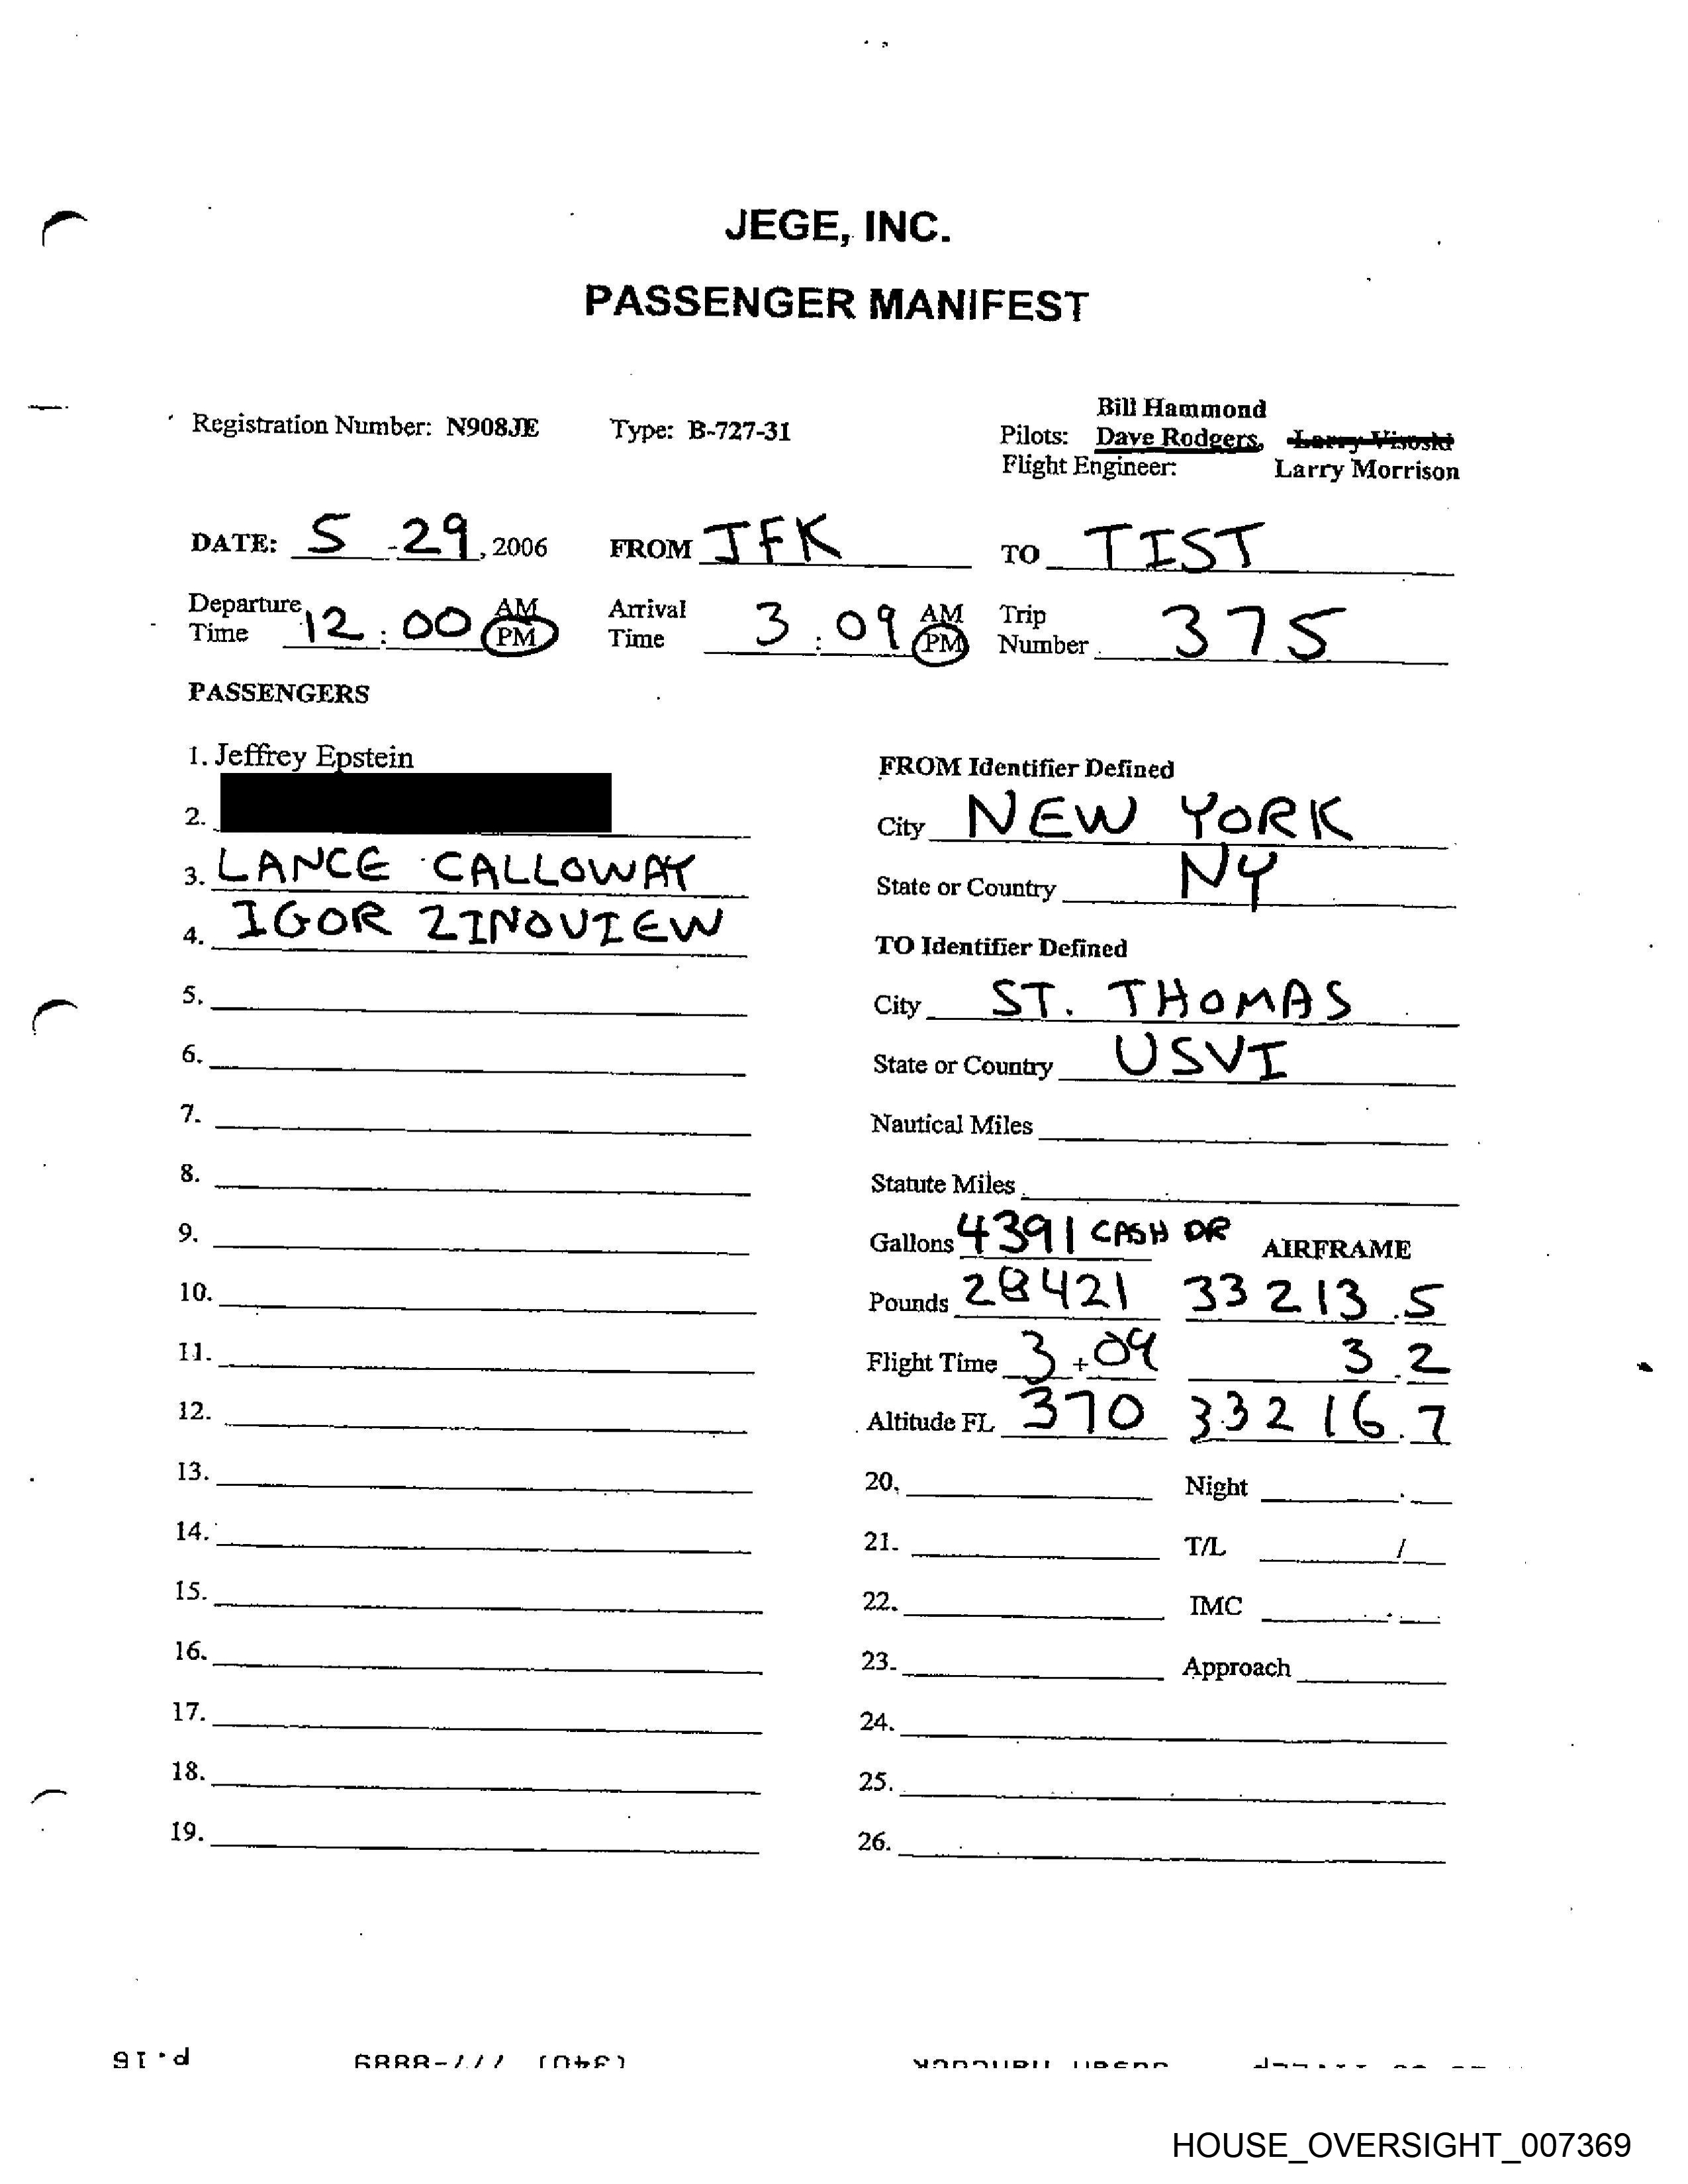 JEGE, INC.
PASSENGER MANIFEST
Registration Number: N908JE Type: B-727-31
Bill Hammond
Pilots: Dave Rodgers, Larry Visoski
Flight Engineer: Larry Morrison
DATE: 5 - 29, 2006 FROM JFK TO TIST
Departure Time 12:00 AM PM Arrival Time 3:09 AM PM Trip Number 375
PASSENGERS
1. Jeffrey Epstein
2.
3. LANCE CALLOWAY
4. IGOR ZINOVIEW
5.
6.
7.
8.
9.
10.
11.
12.
13.
14.
15.
16.
17.
18.
19.
FROM Identifier Defined
City NEW YORK
State or Country NY
TO Identifier Defined
City ST. THOMAS
State or Country USVI
Nautical Miles
Statute Miles
Gallons 4391 CASH DR AIRFRAME
Pounds 28421 33213.5
Flight Time 3+09 3.2
Altitude FL 370 33216.7
20. Night .
21. T/L /
22. IMC .
23. Approach
24.
25.
26.
p.16
HOUSE_OVERSIGHT_007369